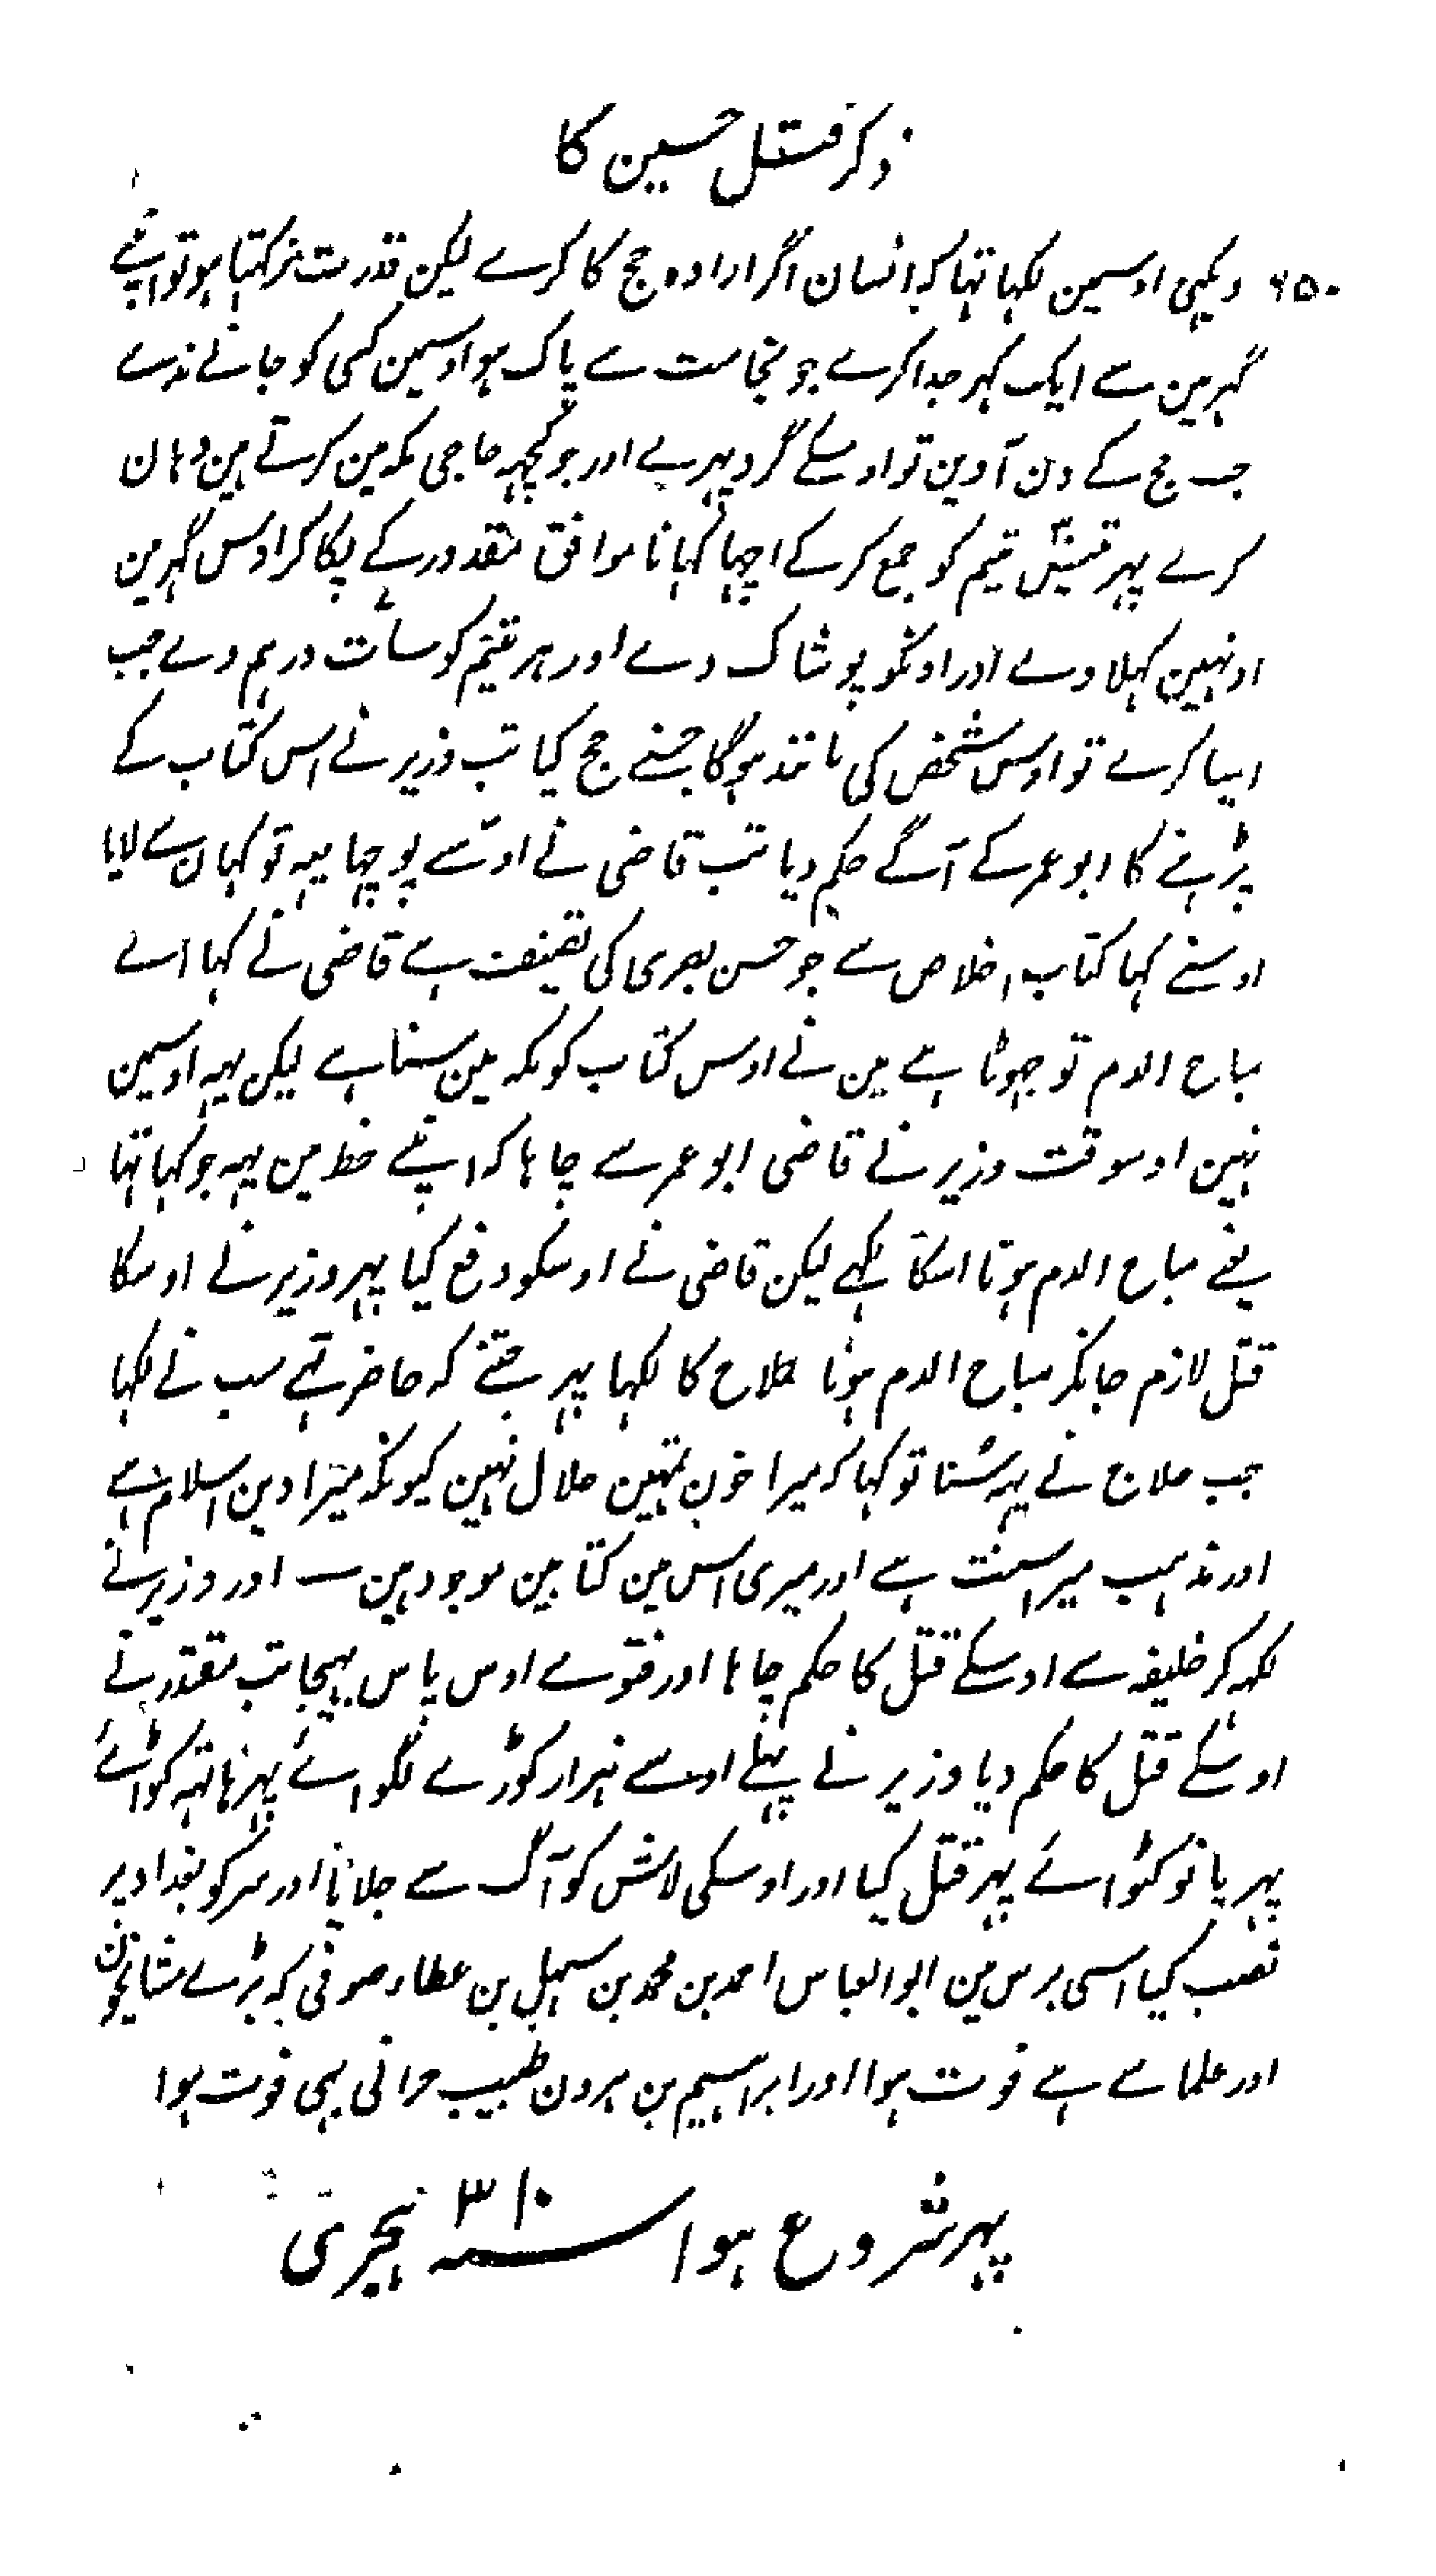 ذکر قتل حسین کا
۶۵۰ دیکہی اوسمین لکہا تہا کہ انسان اگر ارادہ حج کا کرے لیکن قدرت نرکہتا ہو تو اپنے
گہر مین سے ایک گہر جدا کرے جو نجاست سے پاک ہو اوسمین کسی کو جانے ندے
جب حج کے دن آوین تو اوسکے گرد پہرے اور جو کچہہ حاجی مکہ مین کرتے ہین وہان
کرے پہر تیس یتیم کو جمع کر کے اچہا کہانا موافق مقدور کے پکا کر اوس گہر مین
اونہین کہلاوے اور اونکو پوشاک دے اور ہر یتیم کو سات درہم دے جب
ایسا کرے تو اوس شخص کی مانند ہوگا جسنے حج کیا تب وزیر نے اس کتاب کے
پڑہنے کا ابو عمر کے آگے حکم دیا تب قاضی نے اوسے پوچہا یہہ تو کہان سے لایا
اوسنے کہا کتاب اخلاص سے جو حسن بصری کی تصنیف ہے قاضی نے کہا اے
مباح الدم تو جہوٹا ہے مین نے اوس کتاب کو مکہ مین سنا ہے لیکن یہہ اوسمین
نہین اوسوقت وزیر نے قاضی ابو عمر سے چاہا کہ اپنے خط مین یہہ جو کہا تہا
یعنے مباح الدم ہونا اسکا لکہے لیکن قاضی نے اوسکو دفع کیا پہر وزیر نے اوسکا
قتل لازم جانکر مباح الدم ہونا حلاج کا لکہا پہر جتنے کہ حاضر تہے سب نے لکہا
جب حلاج نے یہہ سنا تو کہا کہ میرا خون تمہین حلال نہین کیونکہ میرا دین اسلام ہے
اور مذہب میرا سنت ہے اور میری اس مین کتابین موجود ہین — اور وزیر نے
لکہہ کر خلیفہ سے اوسکے قتل کا حکم چاہا اور فتوے اوس پاس بہیجا تب مقتدر نے
اوسکے قتل کا حکم دیا وزیر نے پہلے اوسے ہزار کوڑے لگوائے پہر ہاتہہ کٹوائے
پہر پانو کٹوائے پہر قتل کیا اور اوسکی لاش کو آگ سے جلایا اور سر کو بغداد پر
نصب کیا اسی برس مین ابو العباس احمد بن محمد بن سہل بن عطاء صوفی کہ بڑے مشایخون
اور علما سے ہے فوت ہوا اور ابراہیم بن ہرون طبیب حرانی بہی فوت ہوا
پہر شروع ہوا سنہ ۳۱۰ ہجری